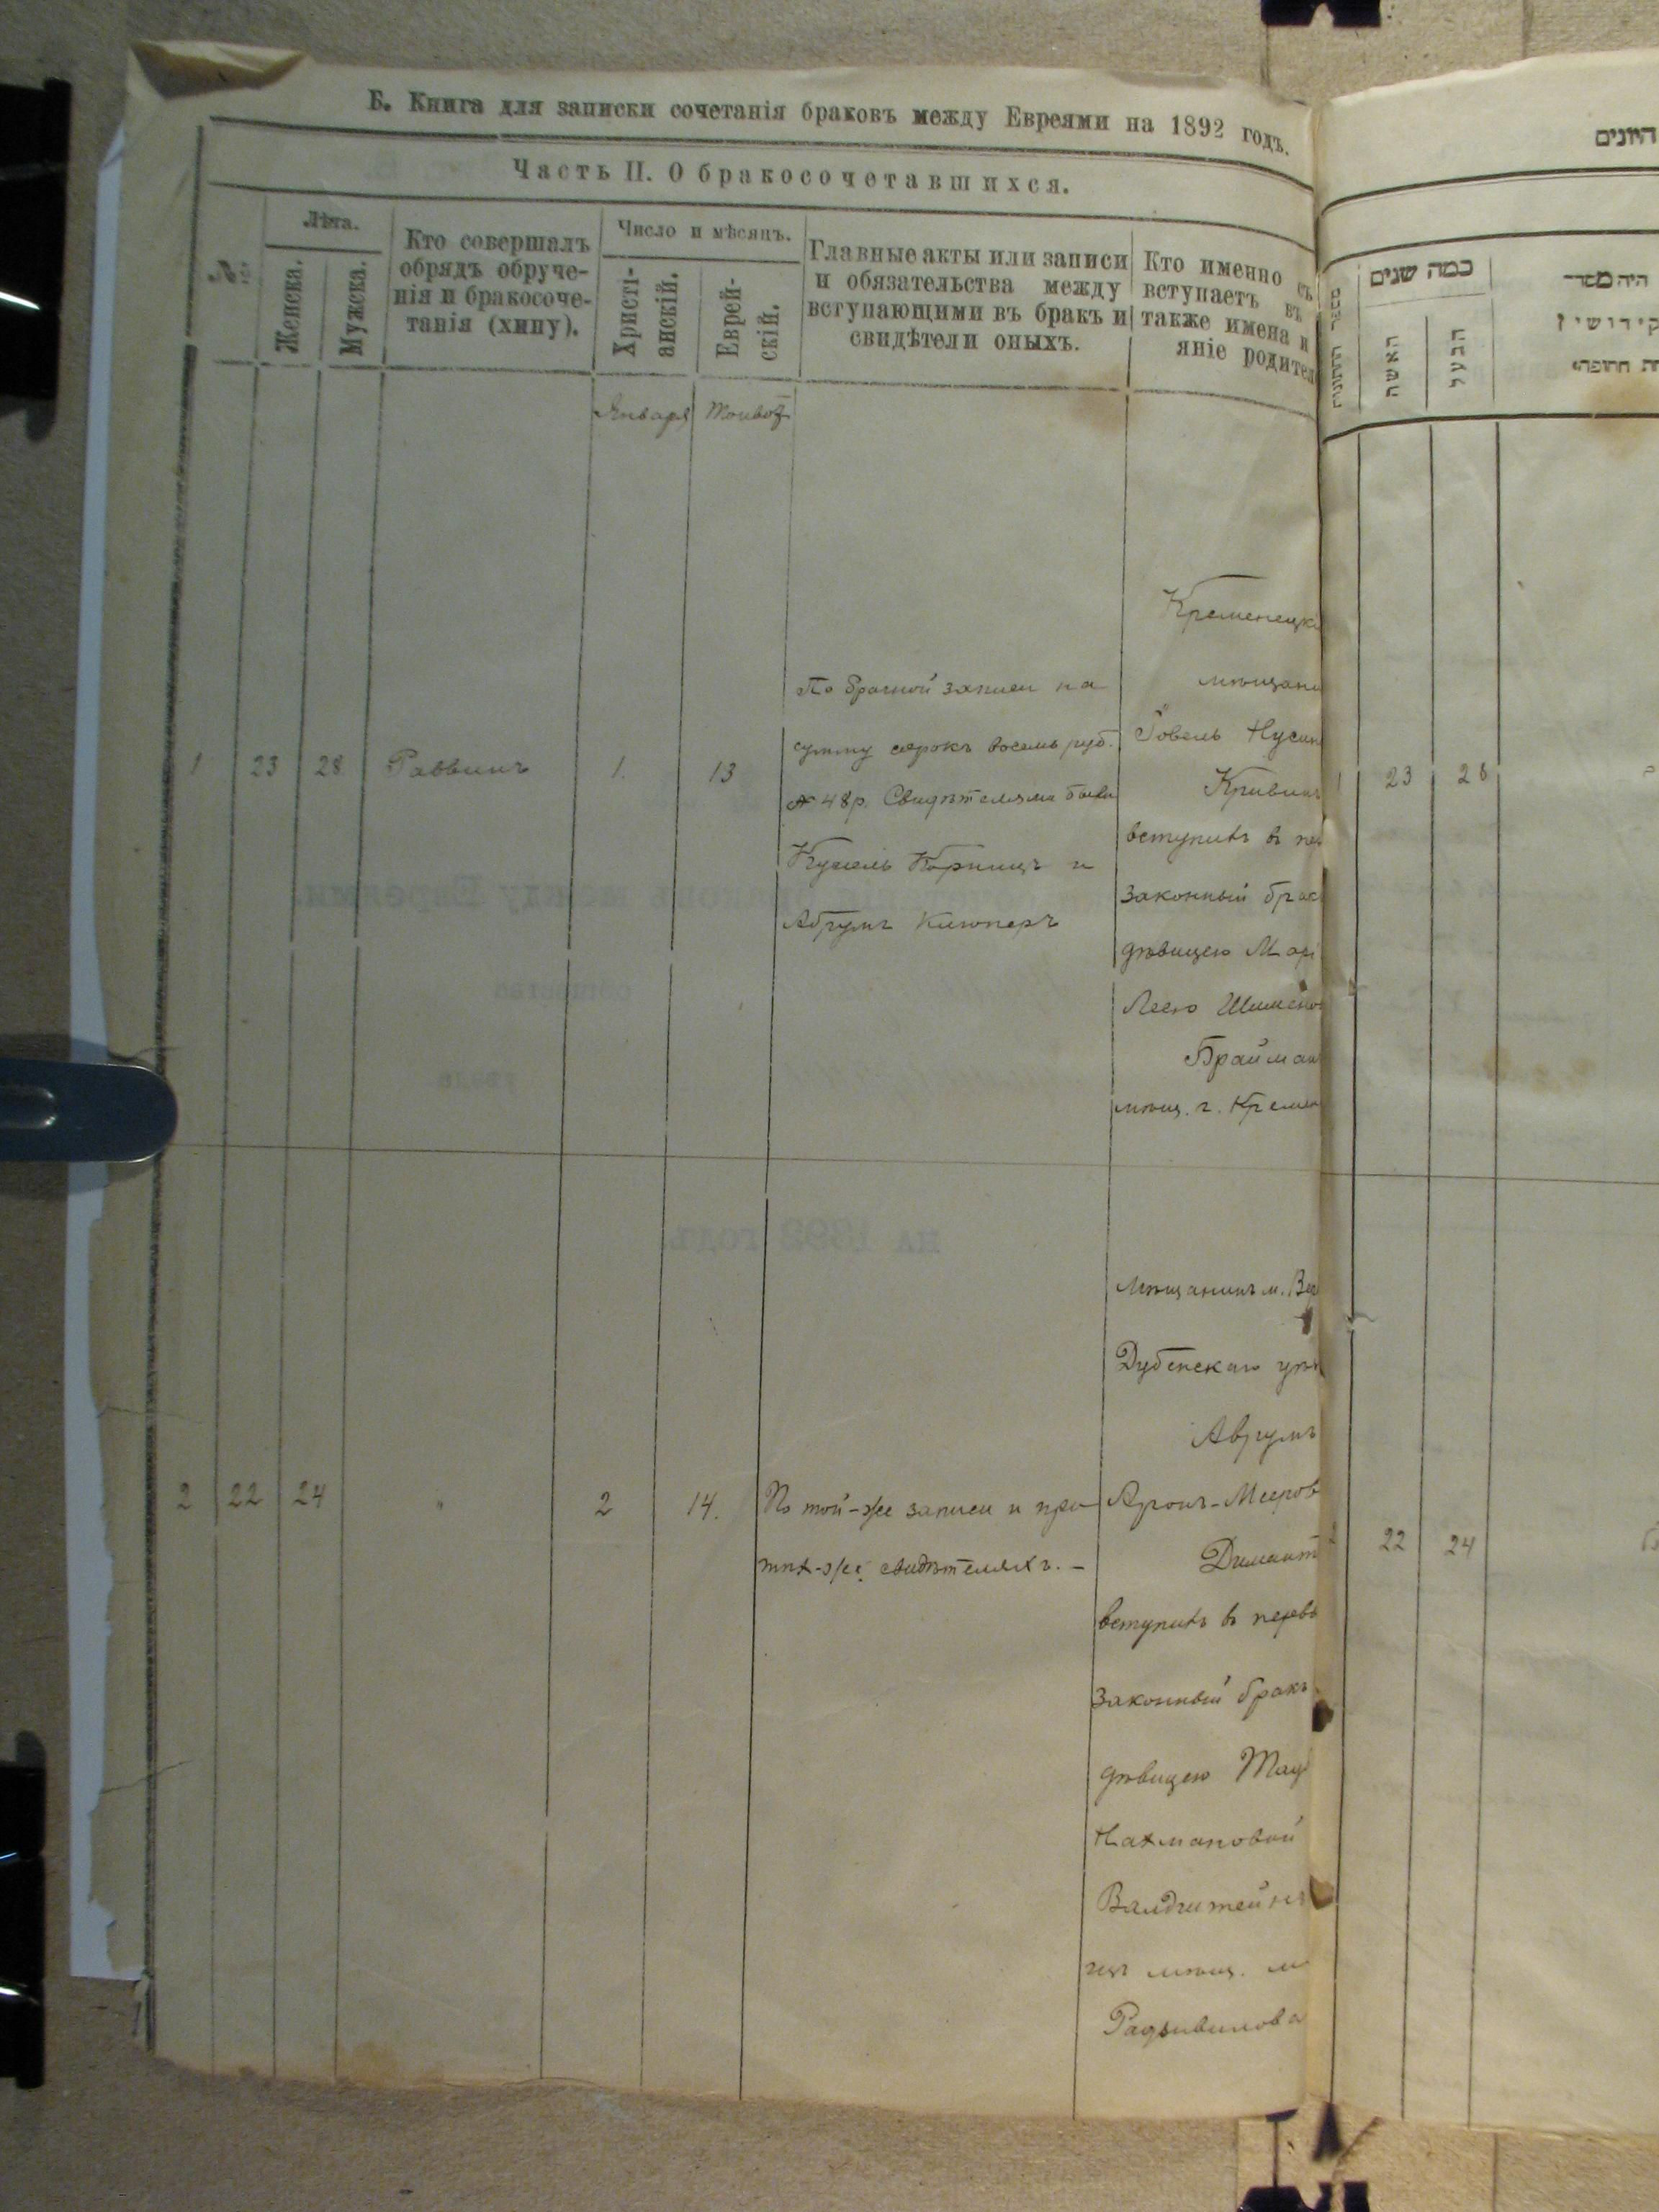 Б. Книга для записки сочетанія браковъ между Евреями на 1892 годъ.
Часть II. О бракосочетавшихся.
№
Лѣта.
Женска.
Мужска.
Кто совершалъ
обрядъ обруче-
нія и бракосоче-
танія (хипу).
Число и мѣсяцъ.
Христі-
анскій.
Еврей-
скій.
Главные акты или записи
и обязательства между
вступающими въ бракъ и
свидѣтели оныхъ.
Кто именно съ
вступаетъ въ
также имена и
яніе родител
Января
1 23 28 Раввинъ 1. 13
По брачной записи на
сумму сорокъ восемь руб.
48 р. Свидѣтелями были
Абрумъ
Кременецкі
мѣщани
Говель Нусин
Кривин
вступилъ въ пер
законный брак
дѣвицею Мар
Леею Шимено
Брайман
мѣщ. г. Кремен
2 22 24 " 2 14.
По той-же записи и при
тѣхъ-же свидѣтеляхъ. —
Мѣщанинъ м.
Дубенскаго уѣз
Аврумъ
Аронъ-Мееров
Димант
вступилъ въ первы
законный бракъ
дѣвицею
Нахмановой
Валдштейнъ
мѣщ. м
Радзивилова
היונים
כמה שנים
האשה
הבעל
היה מסדר
קידושין
חופה
23 28
22 24